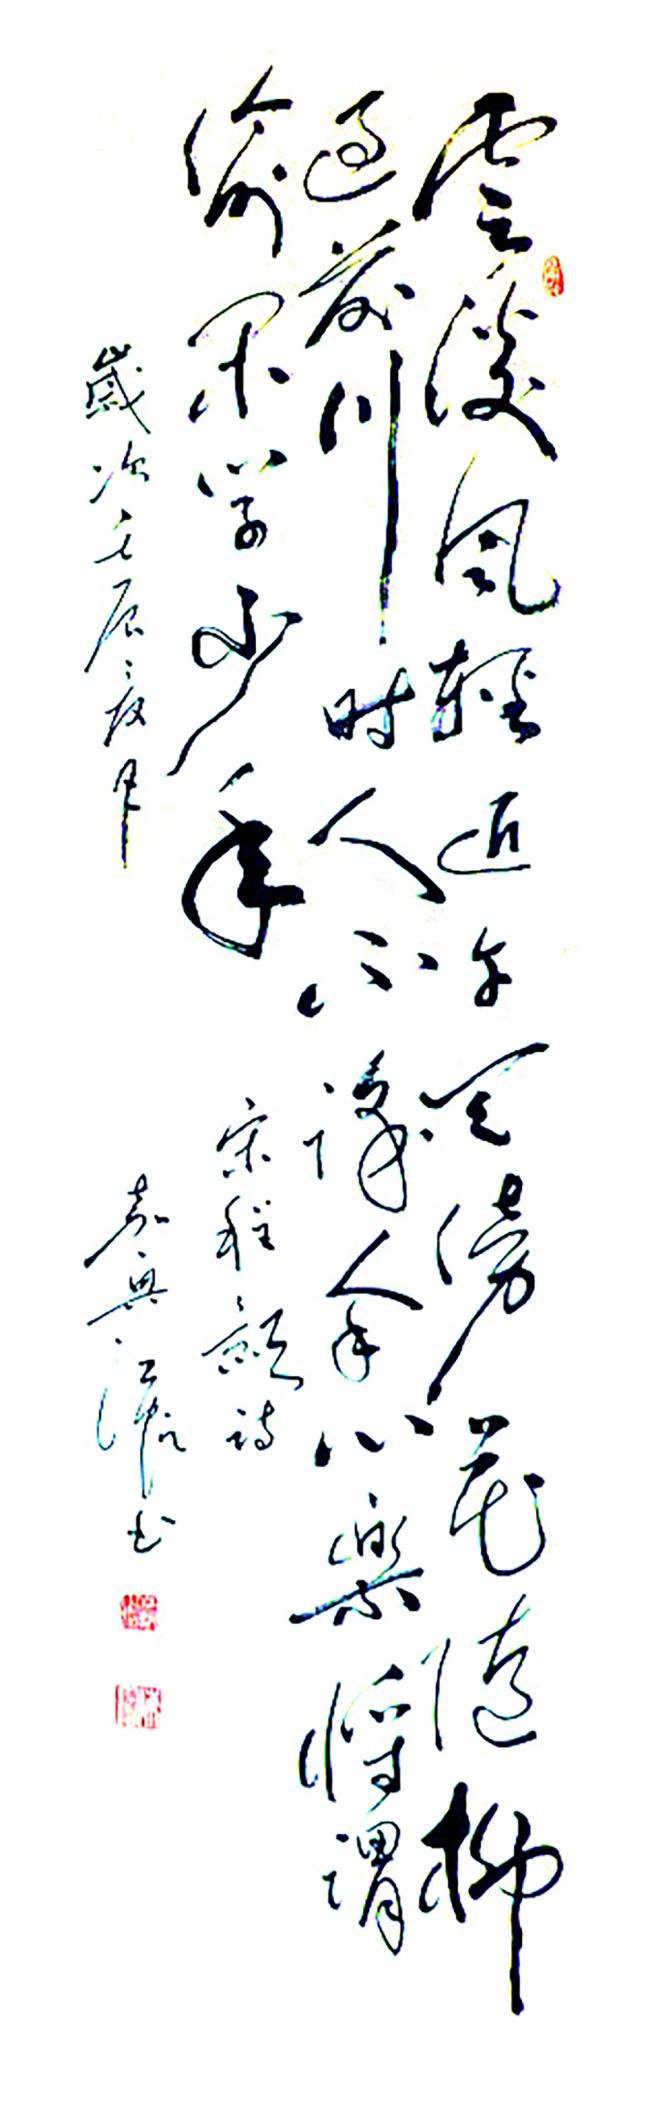 雲淡風輕近午天傍花隨柳
过前川时人不識余心樂將謂
偷闲学少年 宋程顥詩
歲次壬辰夏月 嘉興江书